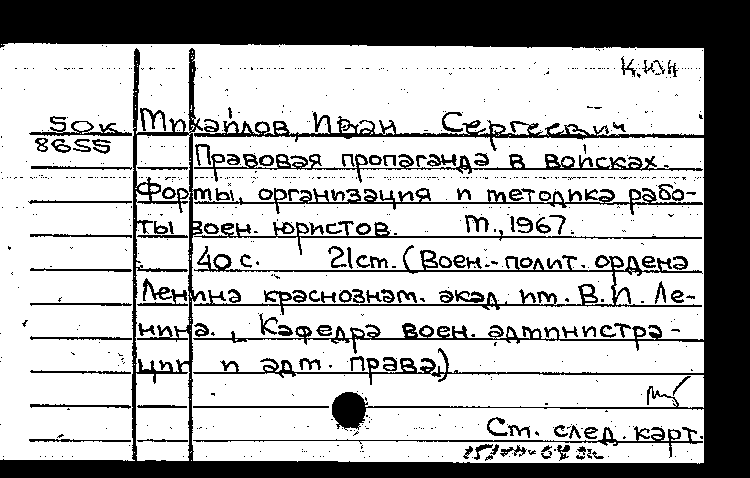 50к Михайлов, Иван Сергеевич
8655 Правовая пропаганда в войсках.
Формы, организация и методика рабо-
ты воен. юристов. М., 1967.
40 с. 21см. (Воен.-полит. ордена
Ленина краснознам. акад. им. В.И. Ле-
нина. Кафедра воен. администра-
ции и адм. права).
См. след. карт.